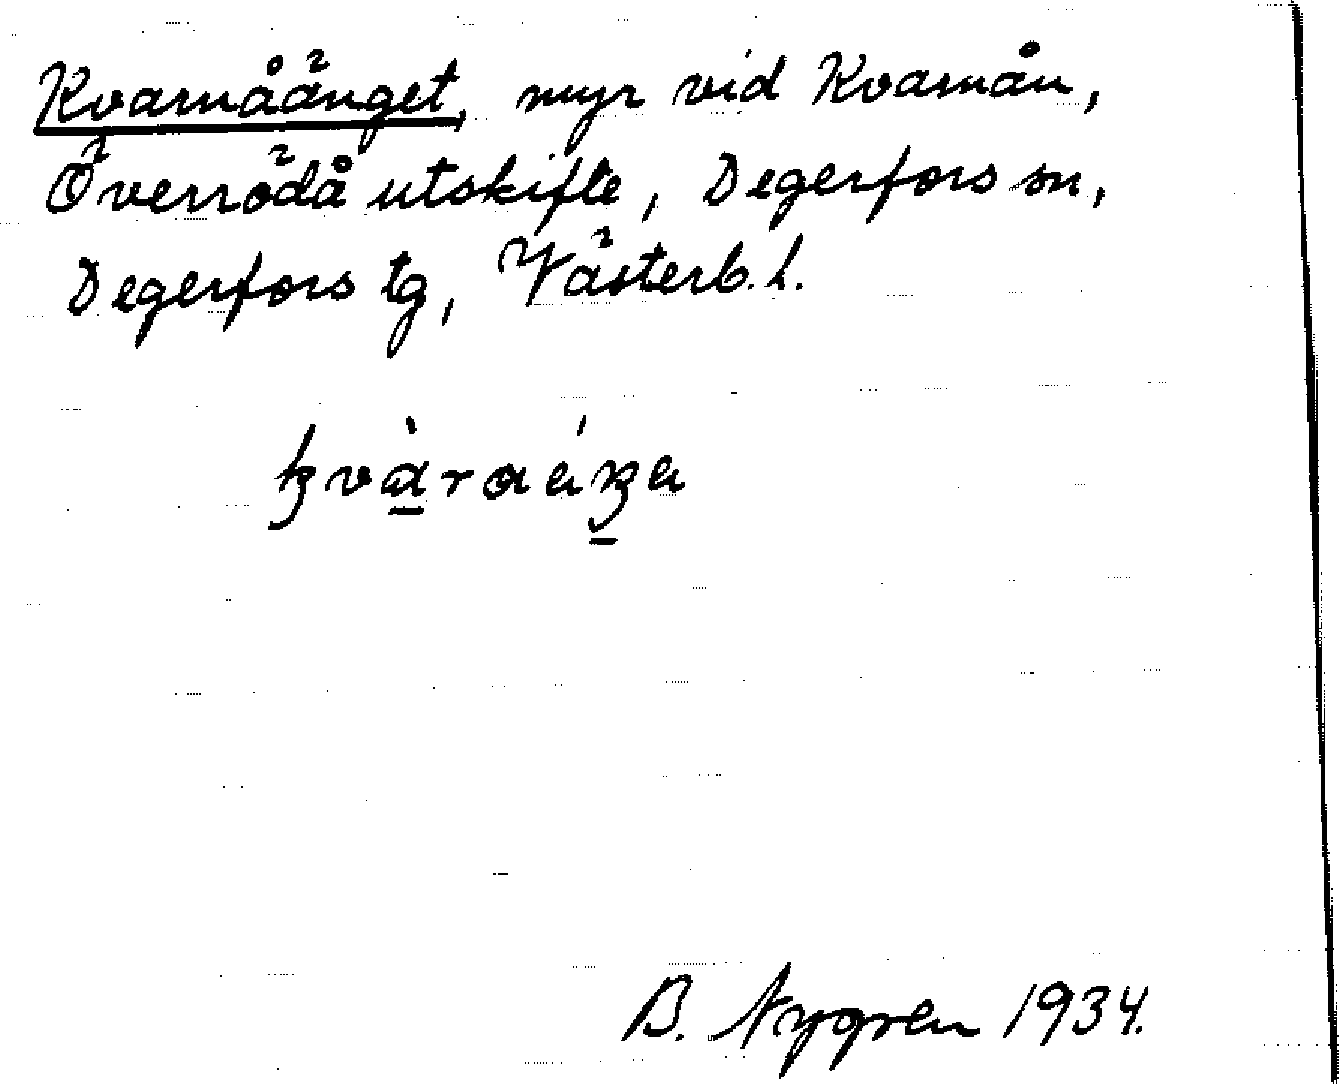 Kvarnåänget, myr vid Kvarnån,
Överrödå utskifte, Degerfors sn,
Degerfors tg, Västerb. l.
B. Nygren 1934.